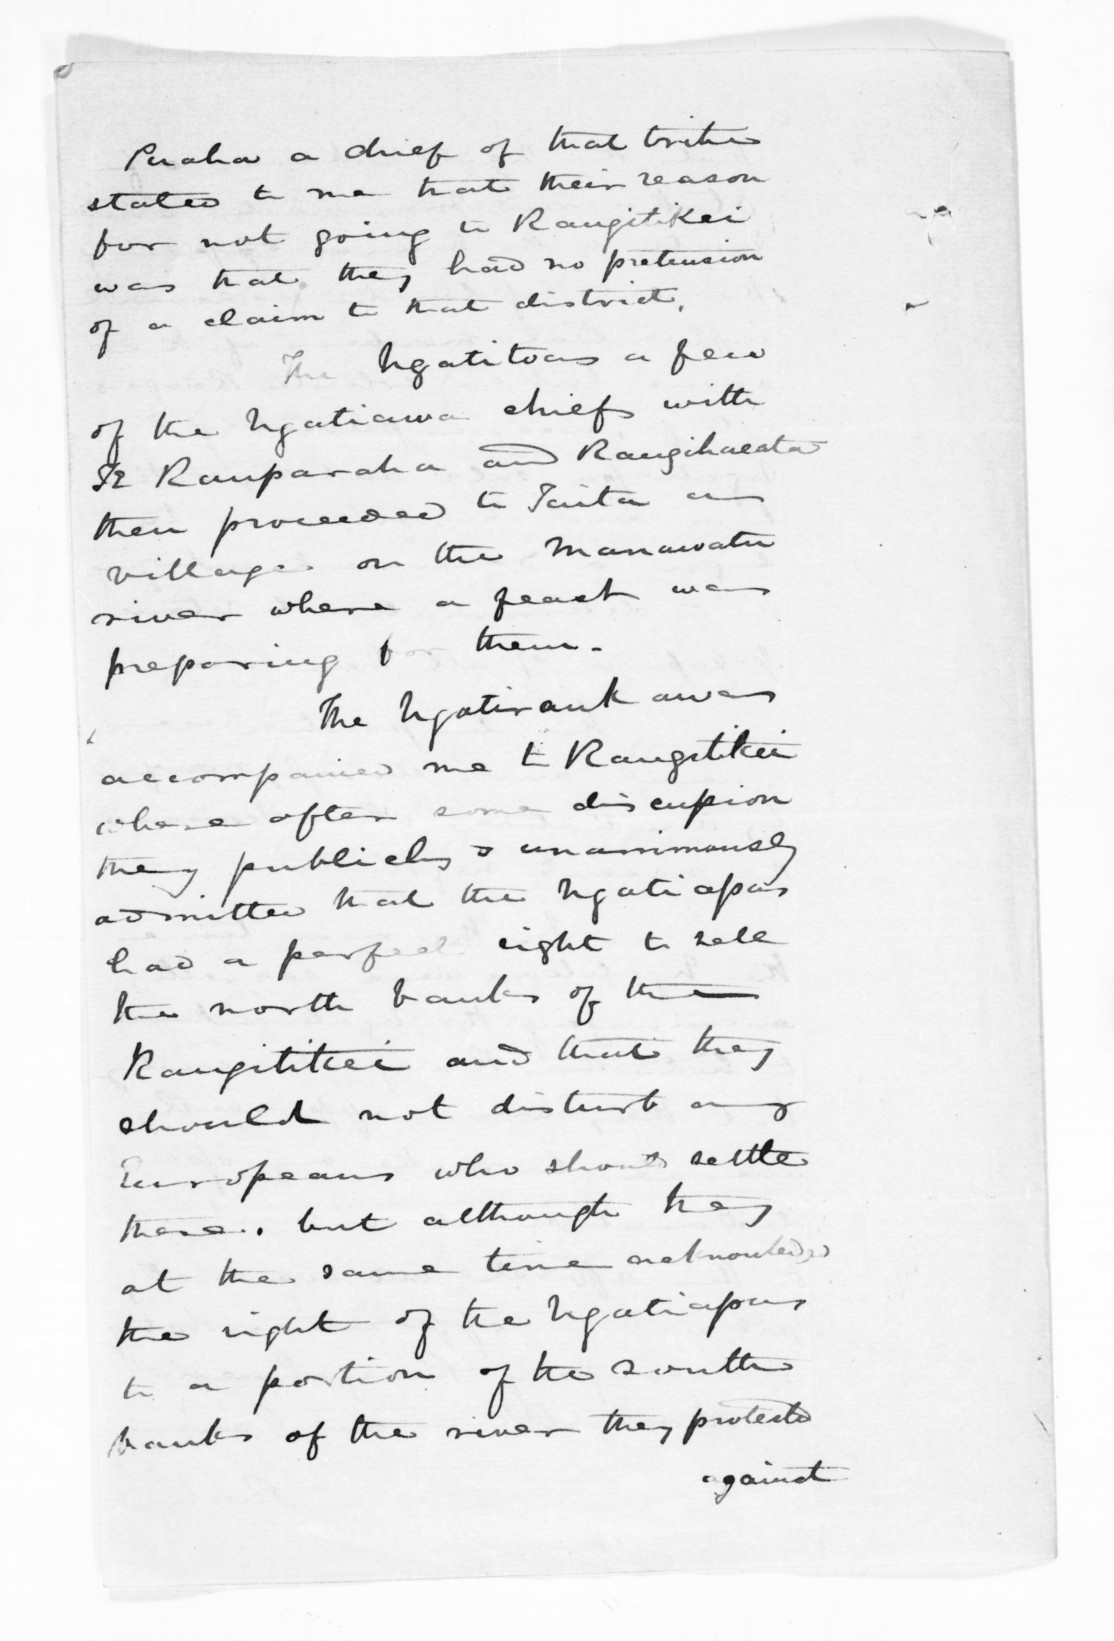 Puaha a chief of that tribe
stated to me that their reason
for not going to Rangitikei
was that they had no pretension
of a claim to that district.
The Ngatitoas a few
of the Ngatiawa chiefs with
Te Rauparaha and Rangihaeata
then proceeded to Taita a
village on the Manawatu
river where a feast was
preparing for them.
The Ngatiraukawas
accompanied me to Rangitikei
where after some discussion
they publicly & unanimously
admitted that the Ngatiapas
had a perfect right to sell
the north banks of the
Rangitikei and that they
should not disturb any
Europeans who should settle
there. but although they
at the same time acknowledged
the right of the Ngatiapas
to a portion of the south
banks of the river they protested
against